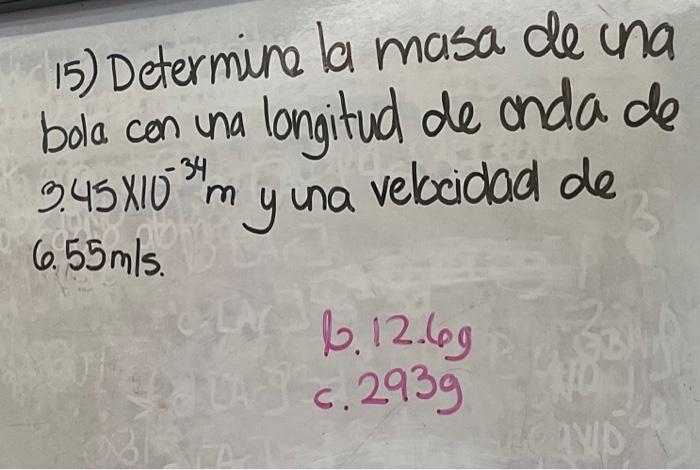 15) Determine la masa de una
bola con una longitud de onda de
3.45X10⁻³⁴m y una velocidad de
6.55m/s.
b. 12.6g
c. 293g